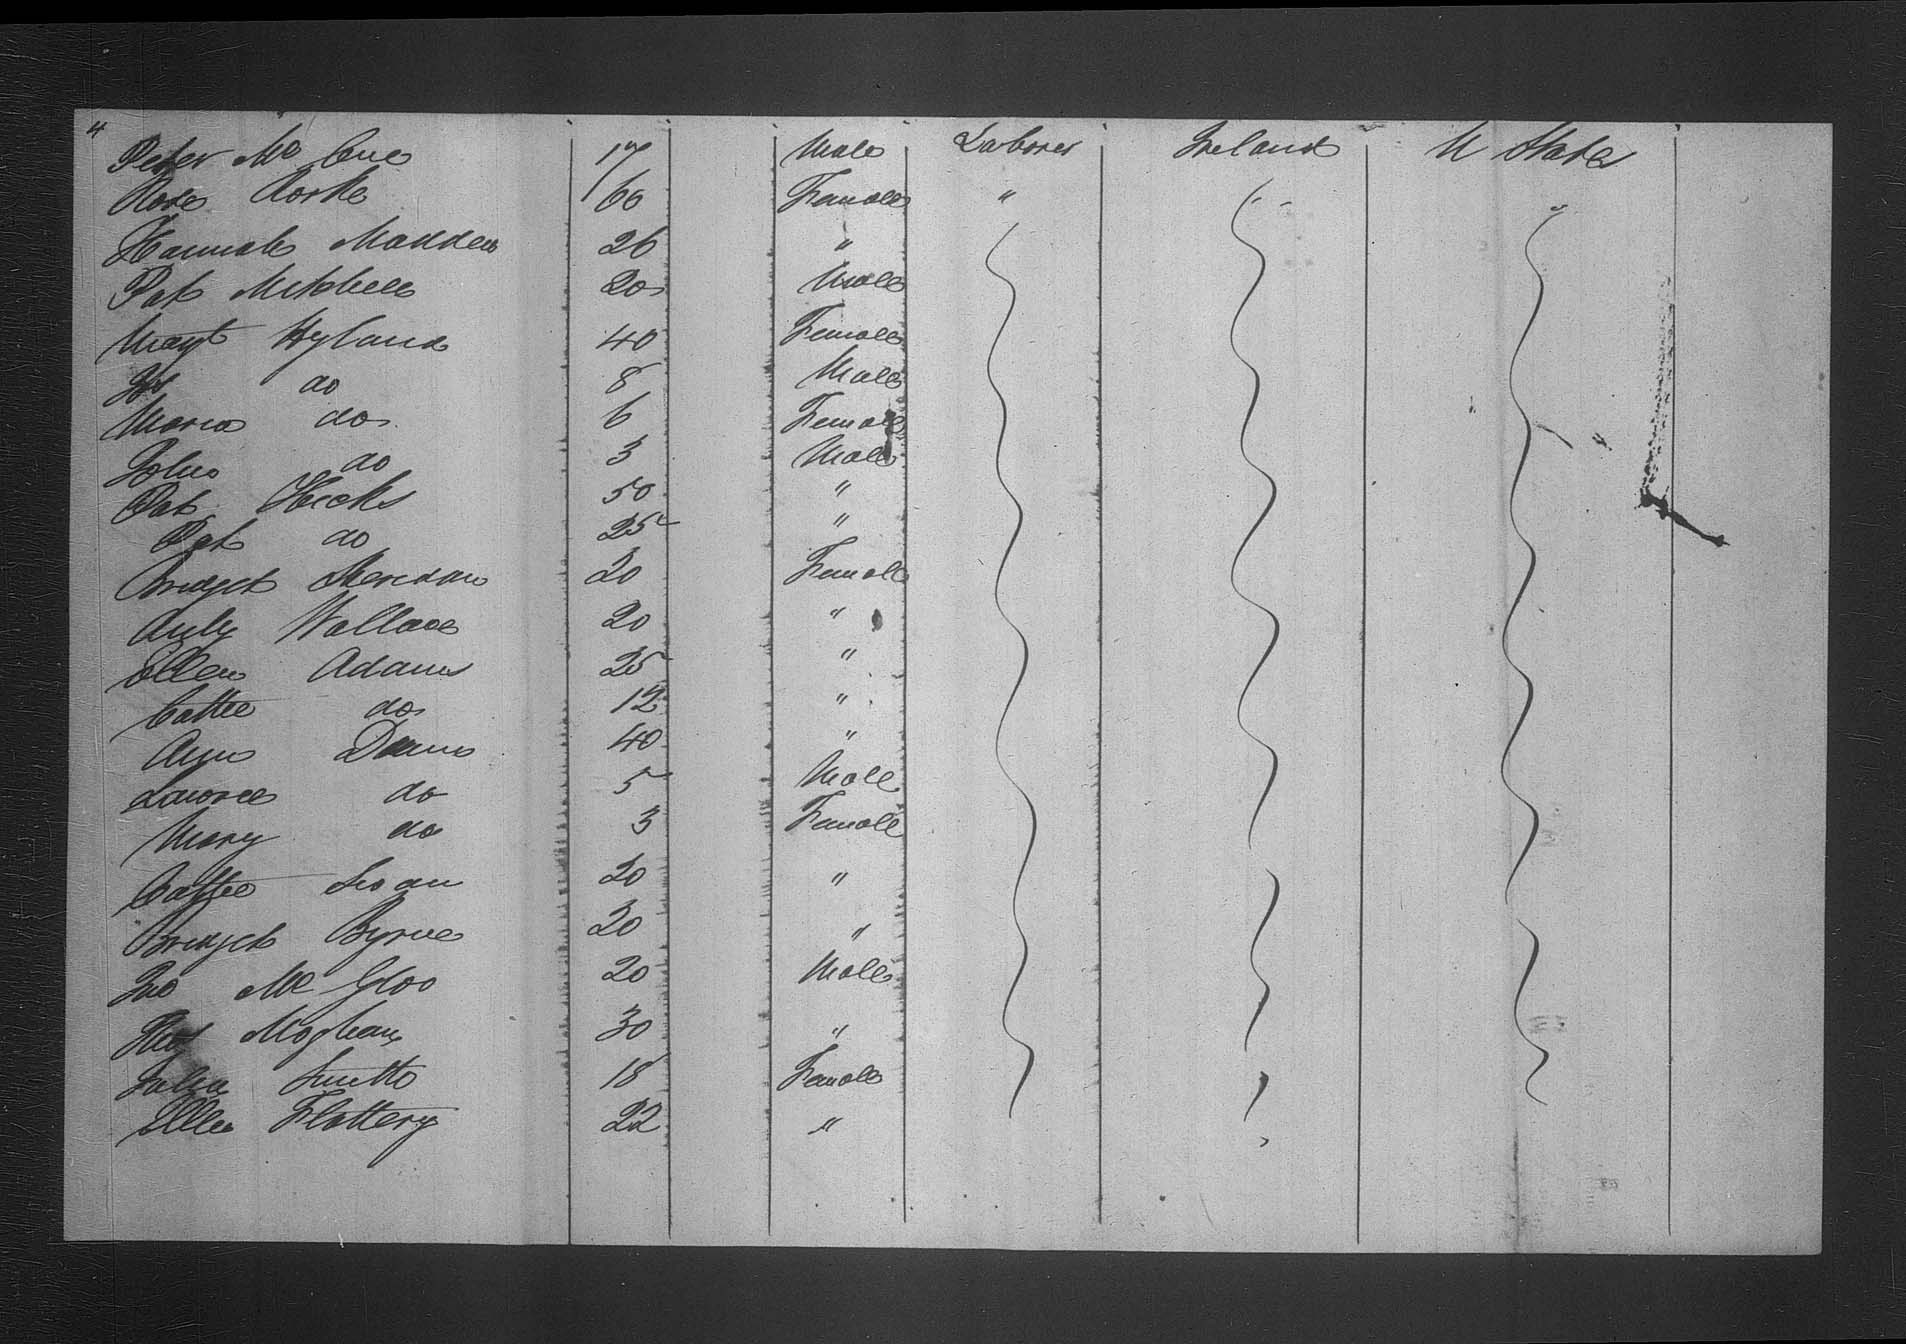 4
Peter Mc Cue 17 Male Laborer Ireland U States
Rose Rorke 60 Female " " "
Hannah Madden 26 "
Pat Mitchell 20 Male
Margt Hyland 40 Female
do 8 Male
Maria do 6 Female
John do 3 Male
Pat Hicks 50 "
Pat do 25 "
Bridget Sheridan 20 Female
Wallace 20 "
Ellen Adams 25 "
Cathe do 12 "
Ann 40 "
Lawrce do 5 Male
Mary do 3 Female
Cathe 20 "
Bridget Byrne 20 "
Jno Mc Gloo 20 Male
30 "
Julia Smith 18 Female
Ellen Flattery 22 "